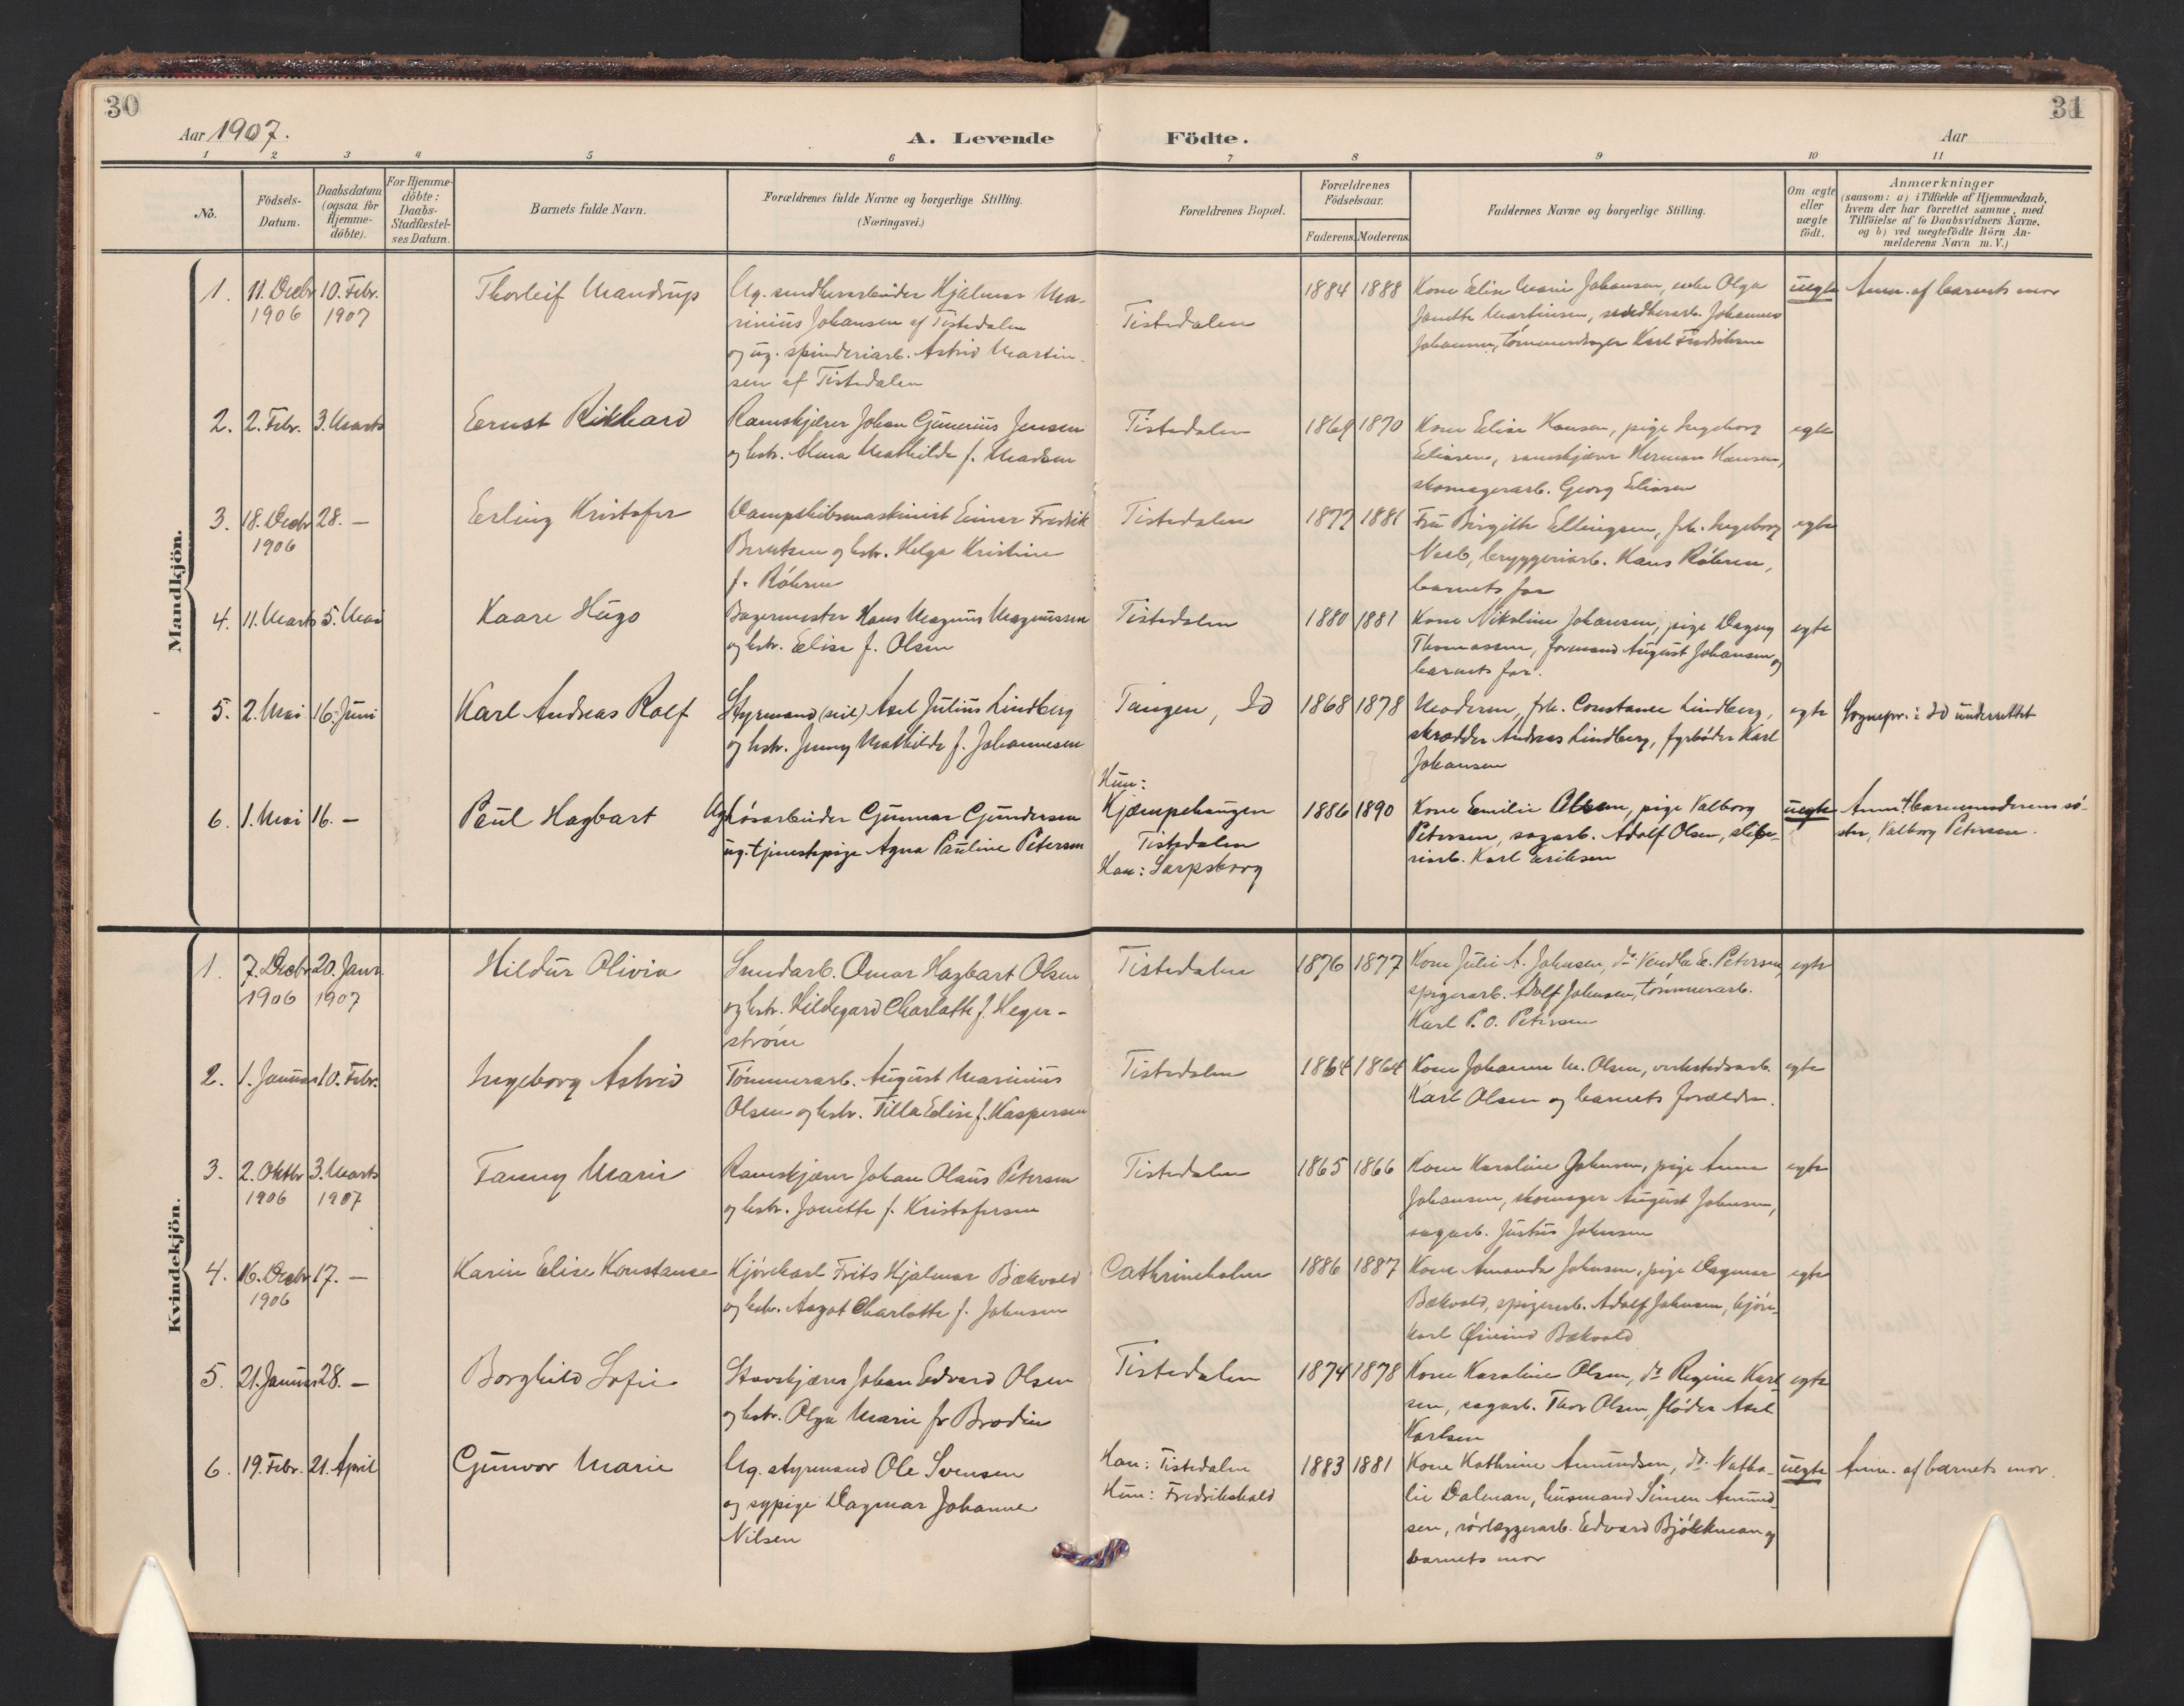 30
31
Aar 1907.
A. Levende Födte.
Aar
1 2 3 4 5 6 7 8 9 10 11
No.
Födsels-Datum.
Daabsdatum (ogsaa for Hjemme-döbte).
For Hjemme-döbte: Daabs-Stadfæstel-ses Datum.
Barnets fulde Navn.
Forældrenes fulde Navne og borgerlige Stilling. (Næringsvei.)
Forældrenes Bopæl.
Forældrenes Födselsaar.
Faderens. Moderens.
Faddernes Navne og borgerlige Stilling.
Om ægte eller uægte födt.
Anmærkninger
(saasom: a) i Tilfælde af Hjemmedaab,
hvem der har forrettet samme, med
Tilföielse af to Daabsvidners Navne,
og b) ved uægtefödte Börn An-
melderens Navn m. V.)
Mandkjön.
1. 11. Decbr 1906 10. Febr. 1907
Thorleif Mandrup
Ug. Hjalmar Ma-
rinius Johansen af Tistedalen
og ug. spinderiarb. Astrid Martin-
sen af Tistedalen
Tistedalen
1884 1888
Kone Elise Marie Johansen, Olga
Janette Martinsen, Johannes
Johansen, Karl Fredriksen
uegte
Anm. af barnets mor
2. 2. Febr. 3. Marts
Ernst Rikhard
Ramskjærer Johan Gunerius Jensen
og hstr. Alma Mathilde f. Madsen
Tistedalen
1869 1870
Kone Elise Hansen, pige Ingeborg
Eliasen, ramskjærer Herman Hansen,
skomagerarb. Georg Eliasen
egte
3. 18. Decbr 1906 28. —
Erling Kristofer
Dampskibsmaskinist Einar Fredrik
Berntsen og hstr. Helga Kristine
f. Röhren
Tistedalen
1877 1881
Fru Birgith Ellingsen, frk. Ingeborg
bryggeriarb. Hans Röhren,
barnets far
egte
4. 11. Marts 5. Mai
Kaare Hugo
Bagermester Hans Magnus Magnussen
og hstr. Elise f. Olsen
Tistedalen
1880 1881
Kone Nikoline Johansen, pige Dagny
Thomassen, formand August Johansen og
barnets far.
egte
5. 2. Mai 16. Juni
Karl Andreas Rolf
Styrmand (seil) Axel Julius Lindberg
og hstr. Jenny Mathilde f. Johannesen
Tangen, Id
1868 1878
Moderen, frk. Constance Lindberg,
skrædder Andreas Lindberg, fyrböder Karl
Johansen
egte
Sognepr. i Id underrettet
6. 1. Mai 16. —
Paul Hagbart
Ug. lösarbeider Gunnar Gundersen
ug. tjenestepige Agna Pauline Petersen
Hun:
Kjæmpehaugen
Tistedalen
Han: Sarpsborg
1886 1890
Kone Emilie Olsen, pige Valborg
Petersen, sagarb. Adolf Olsen, slibe-
riarb. Karl Eriksen
uegte
Anm. af barnemoderens sö-
ster, Valborg Petersen.
Kvindekjön.
1. 7. Decbr 1906 20. Janr. 1907
Hildur Olivia
Omar Hagbart Olsen
og hstr. Hildegard Charlotte f. Heger-
ström
Tistedalen
1876 1877
Kone Julie A. Johnsen, do Vendla E. Petersen,
spigerarb. Adolf Johnsen, tömmerarb.
Karl P. O. Petersen
egte
2. 1. Januar 10. Febr.
Ingeborg Astrid
Tömmerarb. August Marinius
Olsen og hstr. Tilla Elise f. Kaspersen
Tistedalen
1864 1864
Kone Johanne M. Olsen, verkstedsarb.
Karl Olsen og barnets forældre.
egte
3. 2. Oktbr 1906 3. Marts 1907
Fanny Marie
Ramskjærer Johan Olaus Petersen
og hstr. Janette f. Kristofersen
Tistedalen
1865 1866
Kone Karoline Johnsen, pige Anna
Johansen, skomager August Johnsen,
sagarb. Justus Johnsen
egte
4. 16. Decbr 1906 17. —
Karin Elise Konstanse
Kjörekarl Frits Hjalmar Bækvold
og hstr. Aagot Charlotte f. Johnsen
Cathrineholm
1886 1887
Kone Amanda Johnsen, pige Dagmar
Bækvold, spigerarb. Adolf Johnsen, kjöre-
karl Øivind Bækvold
egte
5. 21. Januar 28. —
Borghild Sofie
Stavskjærer Johan Edvard Olsen
og hstr. Olga Marie f. Brodin
Tistedalen
1874 1878
Kone Karoline Olsen, do Regine Karl-
sen, sagarb. Thor Olsen, flöder Axel
Karlsen
egte
6. 19. Febr. 21. April
Gunvor Marie
Ug. styrmand Ole Svensen
og sypige Dagmar Johanne
Nilsen
Han: Tistedalen
Hun: Fredrikshald
1883 1881
Kone Kathrine Amundsen, do Natha-
lie Dalman, husmand Simen Amund-
sen, rörlæggerarb. Edvard Björkman og
barnets mor
uegte
Anm. af barnets mor.